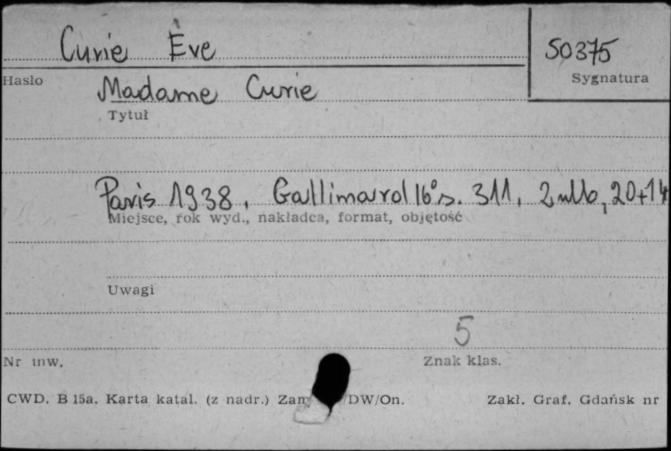 Curie Ève
50375
Hasło
Sygnatura
Madame Curie
Tytuł
Paris 1938, Gallimard 16° s. 311, 2 nlb, 20+14
Miejsce, rok wyd., nakładca, format, objętość
Uwagi
5
Nr inw.
Znak klas.
CWD. B 15a. Karta katal. (z nadr.) Zam DW/On. Zakł. Graf. Gdańsk nr